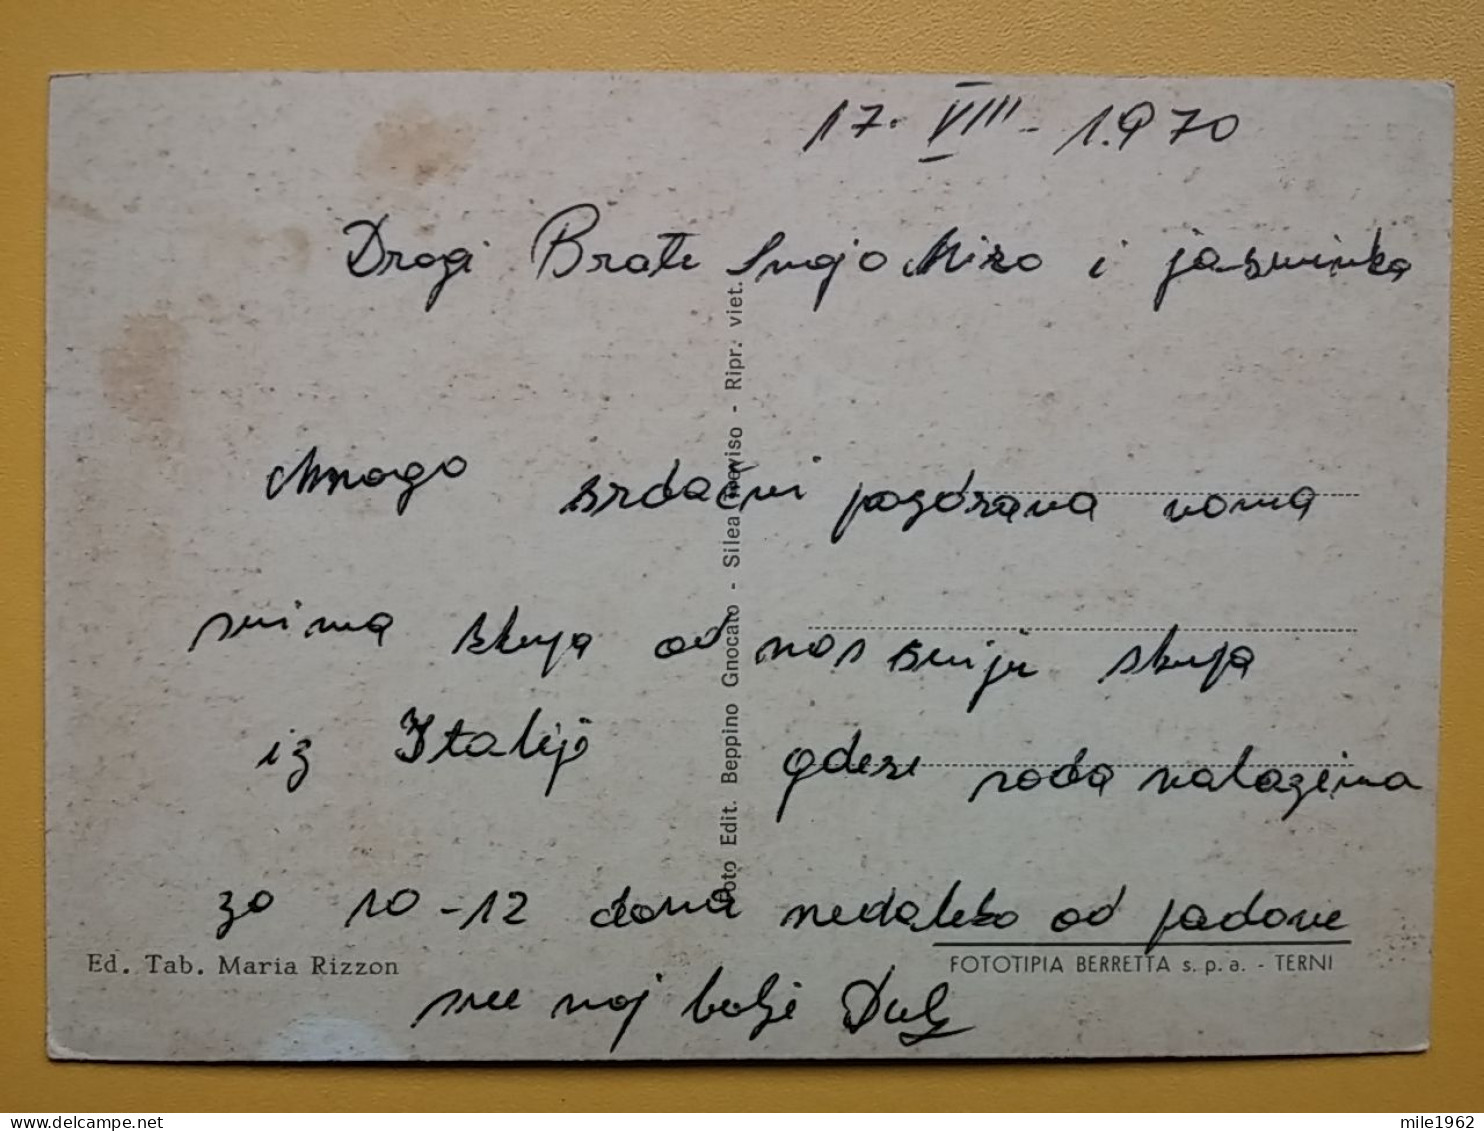 17. VIII - 1.970
Dragi Brate Snajo Miro i jasminka
Mnogo srdačni pozdrava vama
svima skupa od nas sviju skupa
iz Italije gdese sada nalazimo
za 10-12 dana nedaleko od padove
sve naj bolje
Foto Edit. Beppino Gnocato - Silea Treviso - Ripr. viet.
Ed. Tab. Maria Rizzon
FOTOTIPIA BERRETTA s.p.a. - TERNI
mile1962